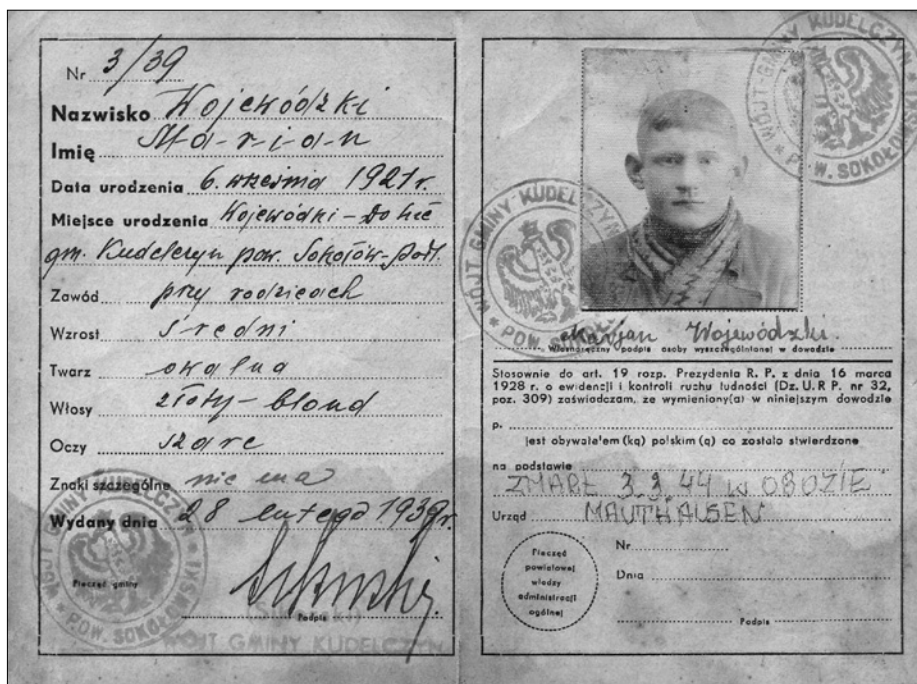 Nr 3/39
Nazwisko Wojewódzki
Imię Ma-r-i-a-n
Data urodzenia 6. września 1921 r.
Miejsce urodzenia Wojewódki-Dolne
gm. Kudelczyn pow. Sokołów-Podl.
Zawód przy rodzicach
Wzrost średni
Twarz okrągła
Włosy złoty-blond
Oczy szare
Znaki szczególne nie ma
Wydany dnia 28 lutego 1939 r.
Pieczęć gminy
Podpis
WÓJT GMINY KUDELCZYN
WÓJT GMINY KUDELCZYN * POW. SOKOŁOWSKI *
WÓJT GMINY KUDELCZYN
POW. SOKOŁO
WÓJT GMINY KUDELCZYN
* POW. SOKOŁO
Marjan Wojewódzki.
Własnoręczny podpis osoby wyszczególnionej w dowodzie
Stosownie do art. 19 rozp. Prezydenta R. P. z dnia 16 marca
1928 r. o ewidencji i kontroli ruchu ludności (Dz. U. R P. nr 32,
poz. 309) zaświadczam, że wymieniony(a) w niniejszym dowodzie
p.
jest obywatelem (ką) polskim (ą) co zostało stwierdzone
na podstawie
ZMARŁ 3.9.44 W OBOZIE
Urząd MAUTHAUSEN
Pieczęć
powiatowej
władzy
administracji
ogólnej
Nr
Dnia
Podpis